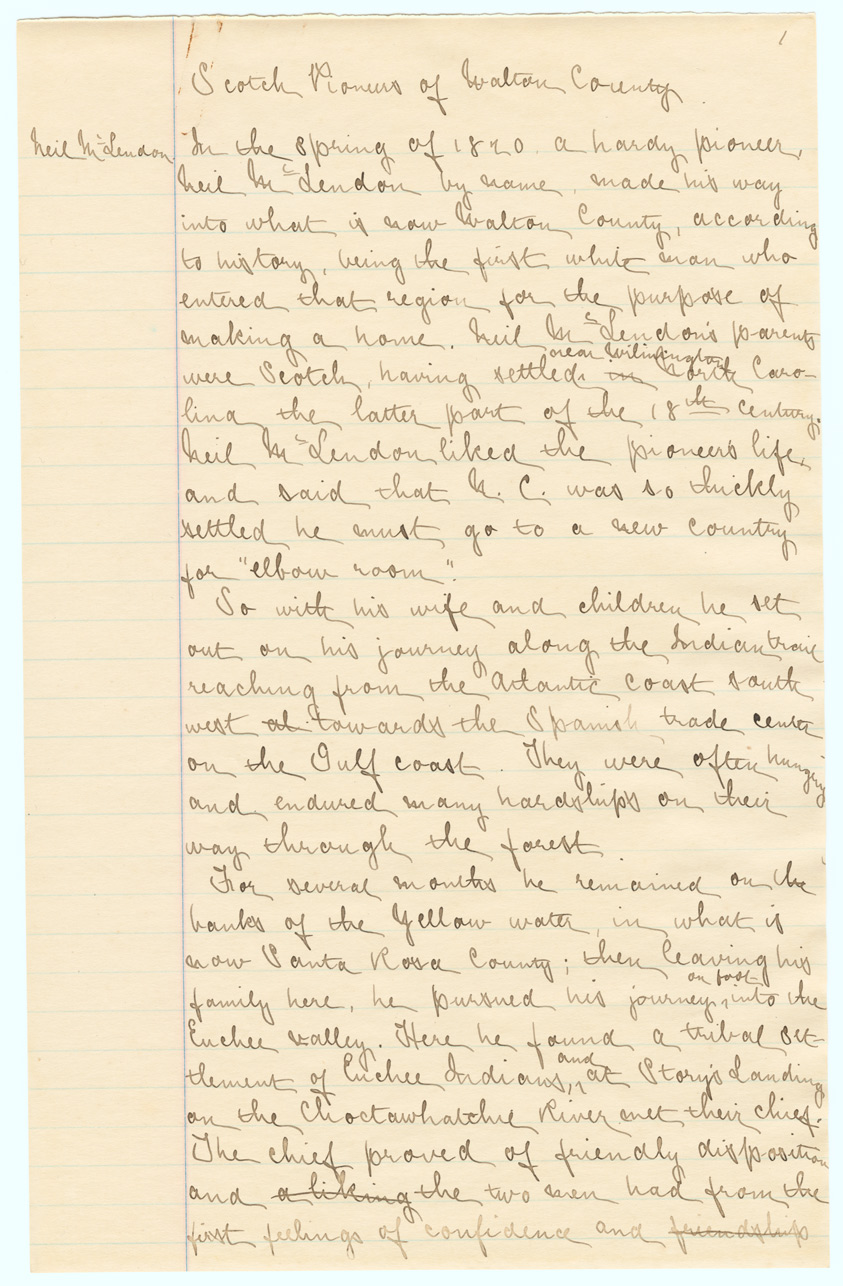 1
Scotch Pioneers of Walton County
Neil McLendon
In the spring of 1820. a hardy pioneer,
Neil McLendon by name, made his way
into what is now Walton County, according
to history, being the first white man who
entered that region for the purpose of
making a home. Neil McLendon's parents
near Wilmington
were Scotch, having settled in North Caro-
lina the latter part of the 18th century.
Neil McLendon liked the pioneers life,
and said that N. C. was so thickly
settled he must go to a new country
for "elbow room".
So with his wife and children he set
out on his journey along the Indian trail
reaching from the Atlantic coast south
west at towards the Spanish trade center
on the Gulf coast. They were often hungry
and endured many hardships on their
way through the forest.
For several months he remained on the
banks of the Yellow water, in what is
now Santa Rosa County; then leaving his
on foot
family here, he pursued his journey, into the
Euchee valley. Here he found a tribal set-
and
tlement of Euchee Indians, at Story's Landing
on the Choctawhatchie River met their chief.
The chief proved of friendly disposition
and a liking the two men had from the
first feelings of confidence and friendship